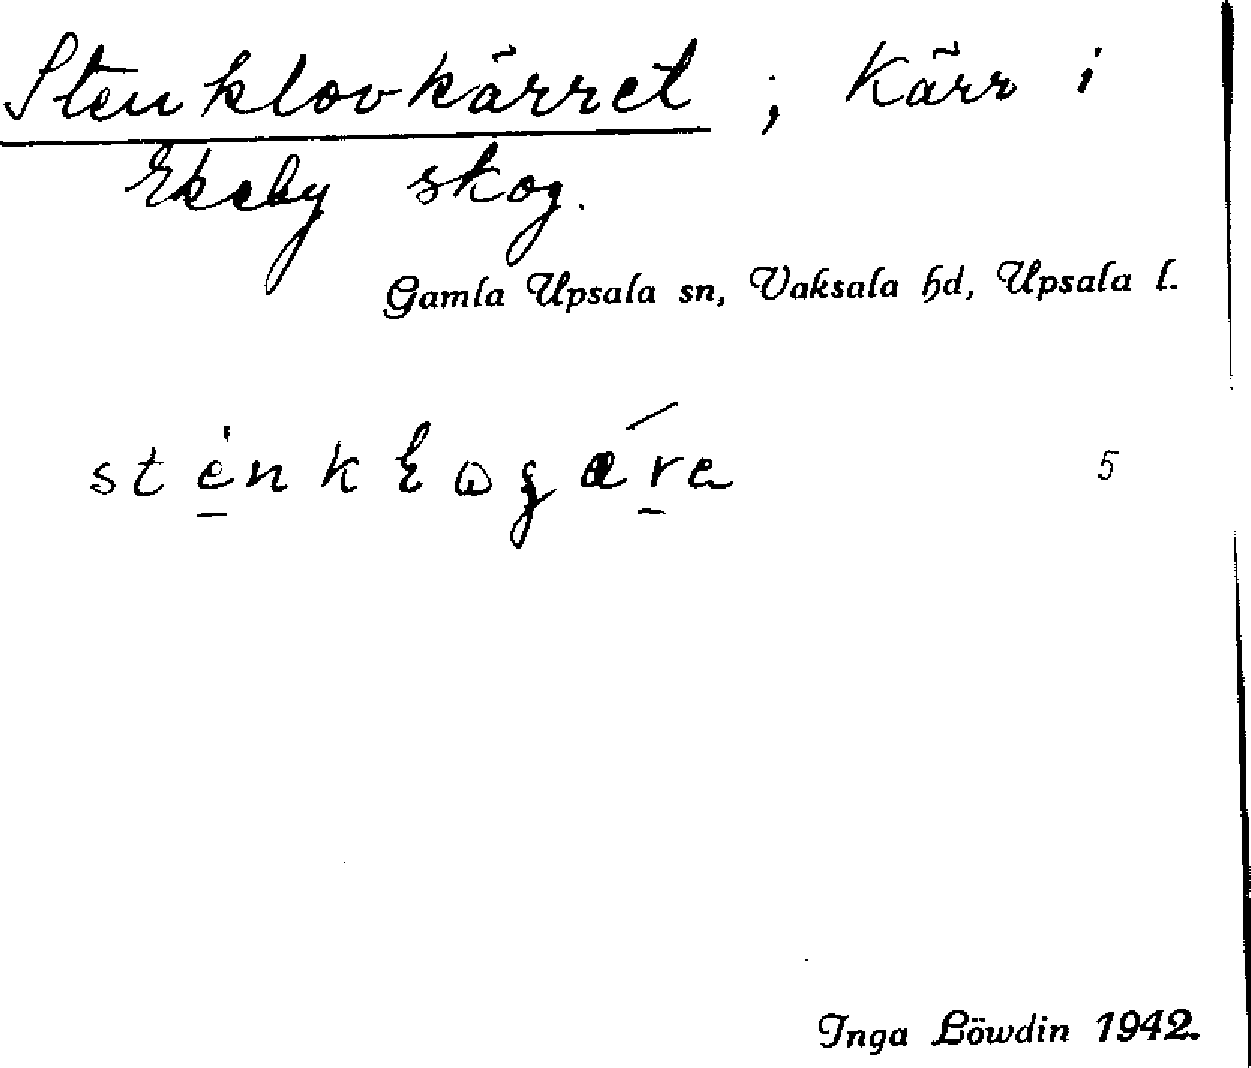 Stenklovkärret ; Kärr i
Ekeby skog.
Gamla Upsala sn, Vaksala hd, Upsala l.
5
Inga Löwdin 1942.